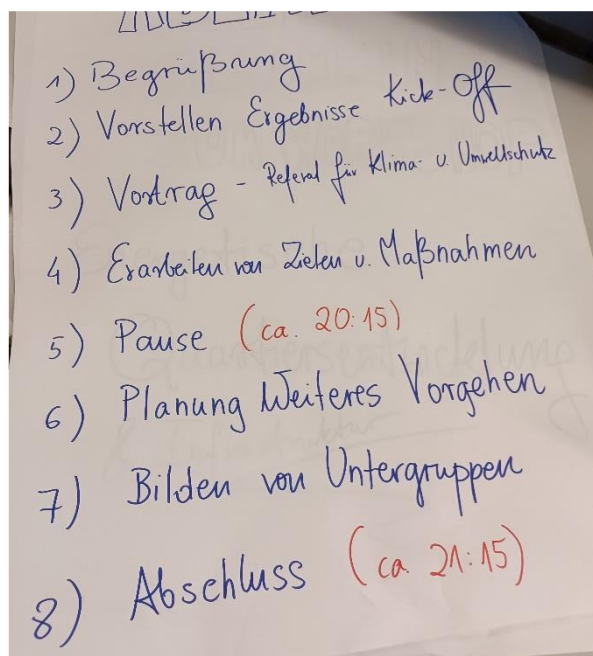 1) Begrüßung
2) Vorstellen Ergebnisse Kick-Off
3) Vortrag - Referat für Klima- u. Umweltschutz
4) Erarbeiten von Zielen u. Maßnahmen
5) Pause (ca. 20:15)
6) Planung Weiteres Vorgehen
7) Bilden von Untergruppen
8) Abschluss (ca. 21:15)